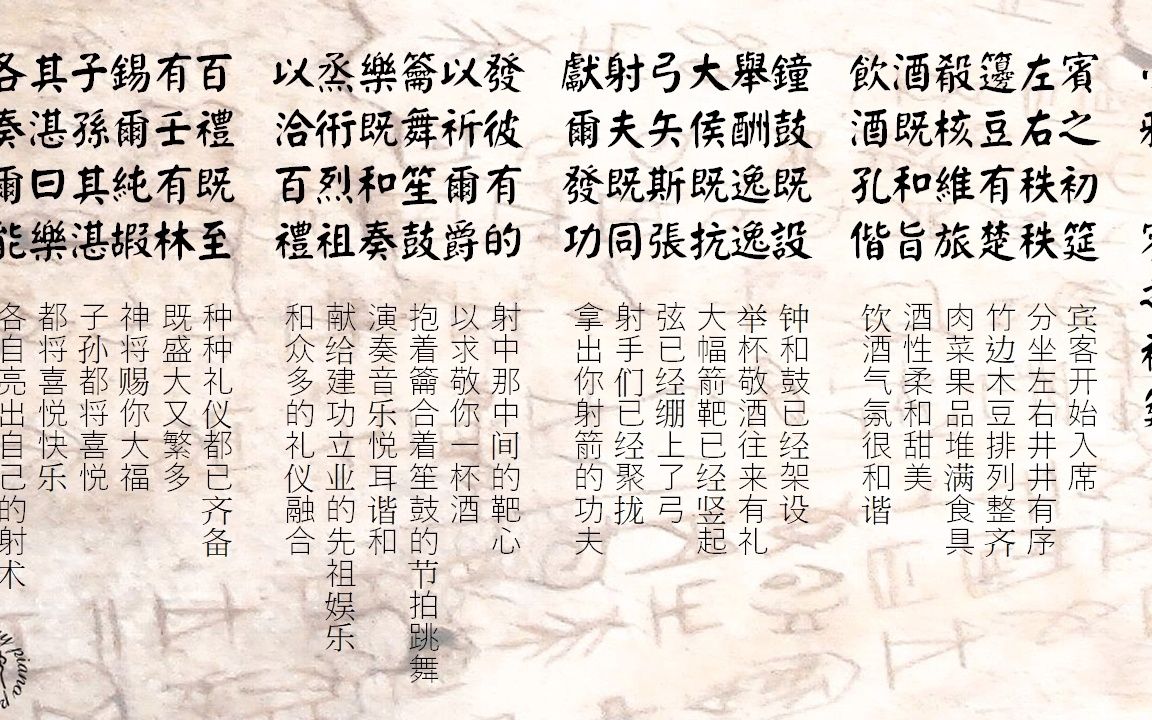 賓之初筵
左右秩秩
籩豆有楚
殽核維旅
酒既和旨
飲酒孔偕
鐘鼓既設
舉酬逸逸
大侯既抗
弓矢斯張
射夫既同
獻爾發功
發彼有的
以祈爾爵
籥舞笙鼓
樂既和奏
烝衎烈祖
以洽百禮
百禮既至
有壬有林
錫爾純嘏
子孫其湛
其湛曰樂
各奏爾能
宾客开始入席
分坐左右井井有序
竹边木豆排列整齐
肉菜果品堆满食具
酒性柔和甜美
饮酒气氛很和谐
钟和鼓已经架设
举杯敬酒往来有礼
大幅箭靶已经竖起
弦已经绷上了弓
射手们已经聚拢
拿出你射箭的功夫
射中那中间的靶心
以求敬你一杯酒
抱着籥合着笙鼓的节拍跳舞
演奏音乐悦耳谐和
献给建功立业的先祖娱乐
和众多的礼仪融合
种种礼仪都已齐备
既盛大又繁多
神将赐你大福
子孙都将喜悦
都将喜悦快乐
各自亮出自己的射术
piano